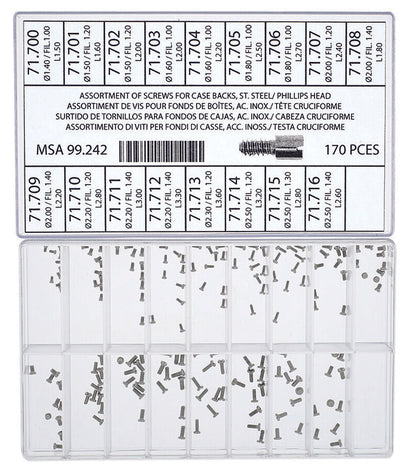 71.700
Ø1.40 / FIL. 1.00
L1.50
71.701
Ø1.50 / FIL. 1.20
L1.60
71.702
Ø1.50 / FIL. 1.20
L2.00
71.703
Ø1.60 / FIL. 1.00
L2.00
71.704
Ø1.60 / FIL. 1.20
L1.80
71.705
Ø1.80 / FIL. 1.00
L2.50
71.706
Ø1.80 / FIL. 1.00
L2.70
71.707
Ø2.00 / FIL. 1.20
L2.40
71.708
Ø2.00 / FIL. 1.40
L1.80
ASSORTMENT OF SCREWS FOR CASE BACKS, ST. STEEL/ PHILLIPS HEAD
ASSORTIMENT DE VIS POUR FONDS DE BOÎTES, AC. INOX./ TÊTE CRUCIFORME
SURTIDO DE TORNILLOS PARA FONDOS DE CAJAS, AC. INOX./ CABEZA CRUCIFORME
ASSORTIMENTO DI VITI PER FONDI DI CASSE, ACC. INOSS./ TESTA CRUCIFORME
MSA 99.242
170 PCES
71.709
Ø2.00 / FIL. 1.40
L2.20
71.710
Ø2.20 / FIL. 1.20
L2.80
71.711
Ø2.20 / FIL. 1.40
L3.00
71.712
L2.20
71.713
L3.20
71.714
Ø2.50 / FIL. 1.20
L3.60
71.715
Ø2.50 / FIL. 1.30
L2.80
71.716
Ø2.50 / FIL. 1.40
L2.60